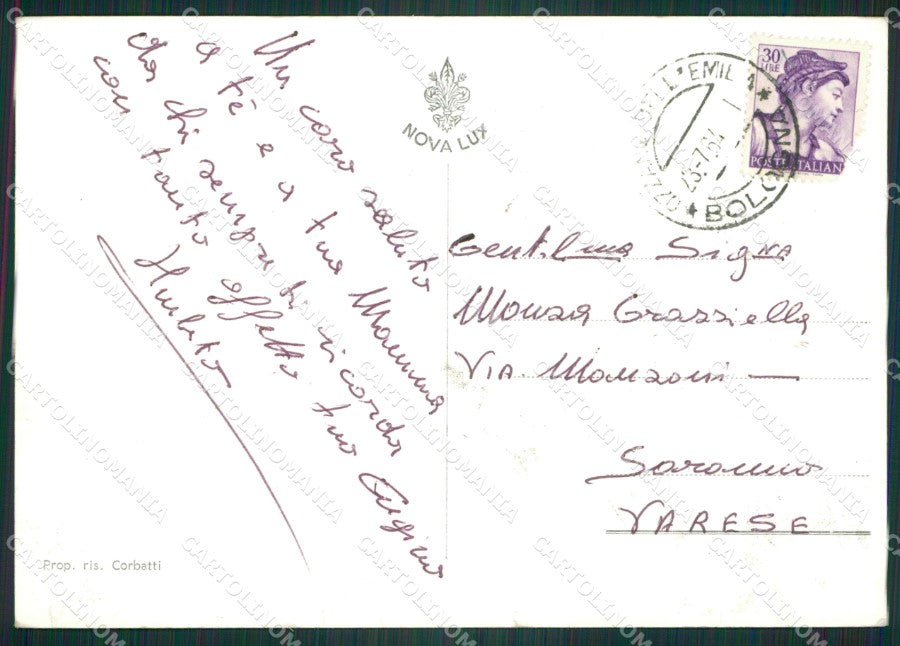 Un caro saluto
a tè e a tua Mamma
da chi sempre ti ricorda
con tanto affetto tuo Cugino
Umberto
NOVA LUX
30
LIRE
POSTE ITALIANE
DELL'EMILIA
BOLOGNA
23-7-64
Gentilma Signa
Monza Grazziella
Via Manzoni
Saronno
VARESE
Prop. ris. Corbatti
CARTOLINOMANIA